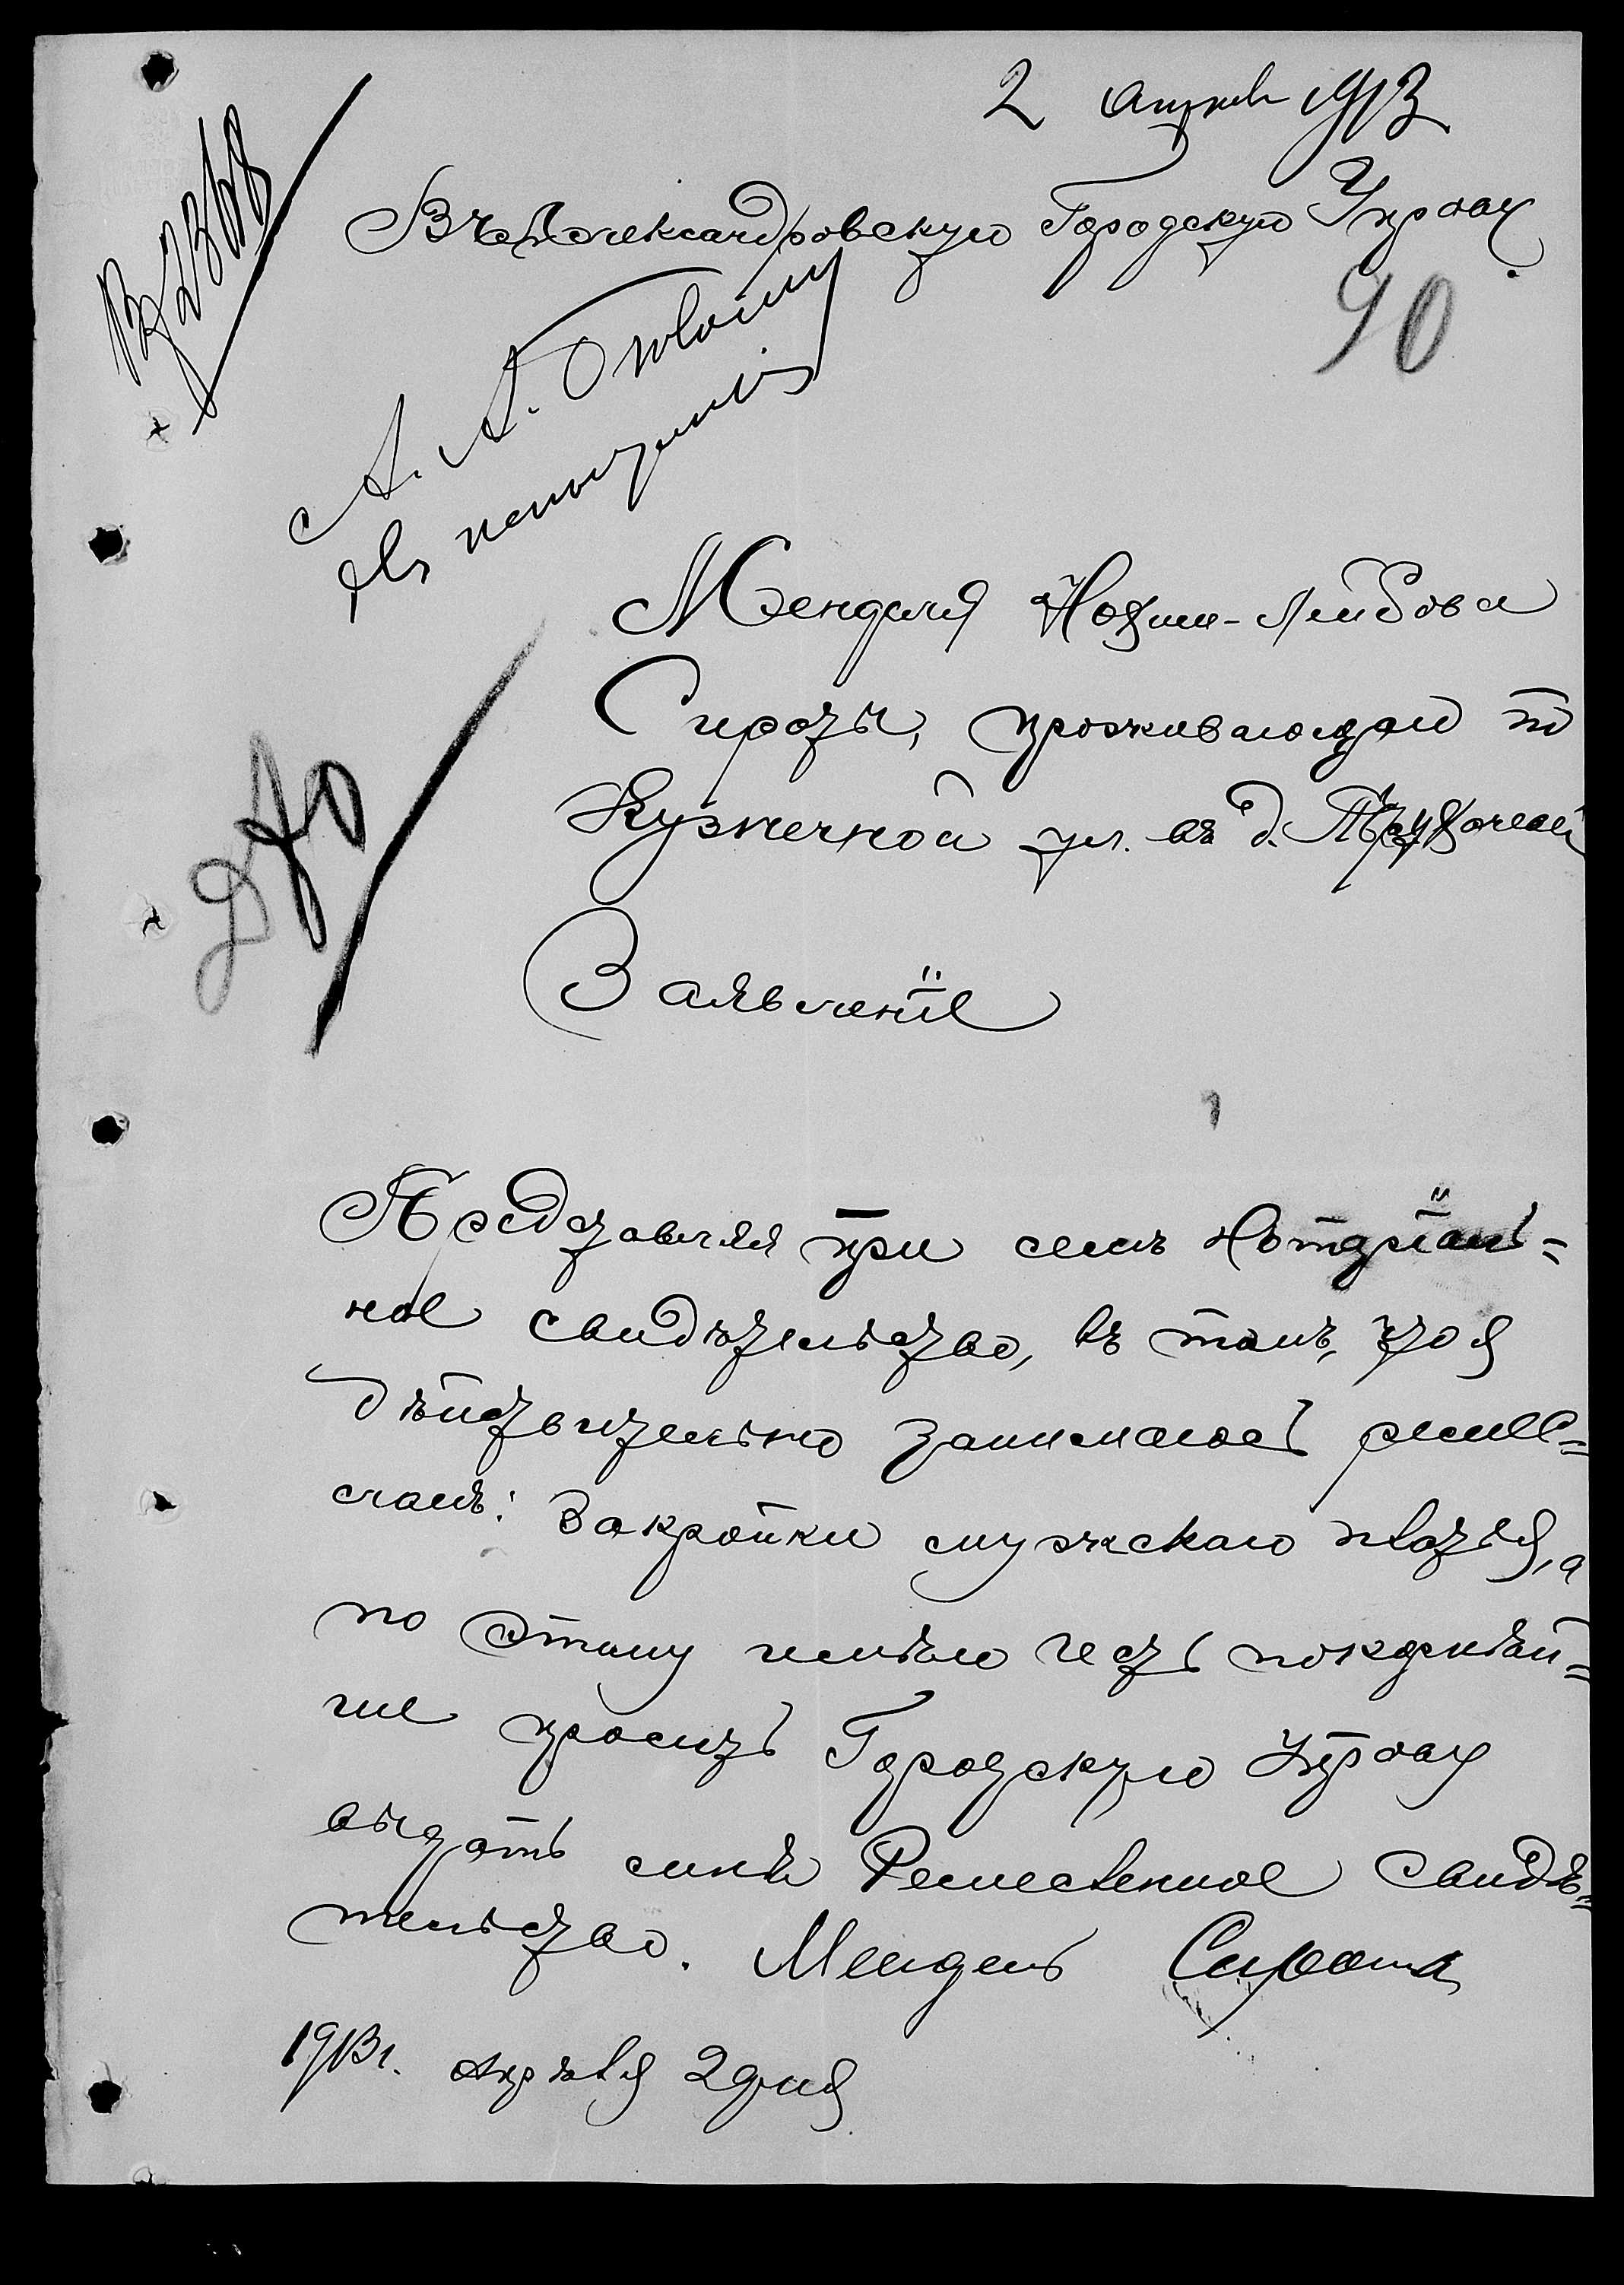 2 апреля 1913
Въ Александровскую Городскую Управу.
90
Вх 2368
А. А.
Къ исполненiю
Менделя Нохим-Лейбова
Сирота, проживающаго по
Кузнечной ул. въ д.
270
Заявленiе
Представляя при семъ Нотарiаль=
ное свидѣтельство, въ томъ, что я
дѣйствительно занимаюсь ремес=
ломъ: Закройки мужскаго платья, а
по этому имѣю честь покорнѣй=
ше просить Городскую Управу
выдать мнѣ Ремесленное Свидѣ=
тельство. Мендель Сирота
1913 г. Апрѣля 2 дня